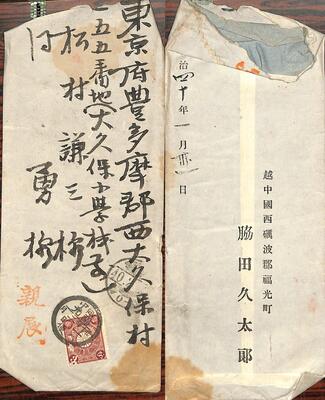 東京府豊多摩郡西大久保村
一五五番地(大久保小学校前)
松村謙三様
同 勇様
親展
治四十年一月 日
越中國西礪波郡福光町
脇田久太郎